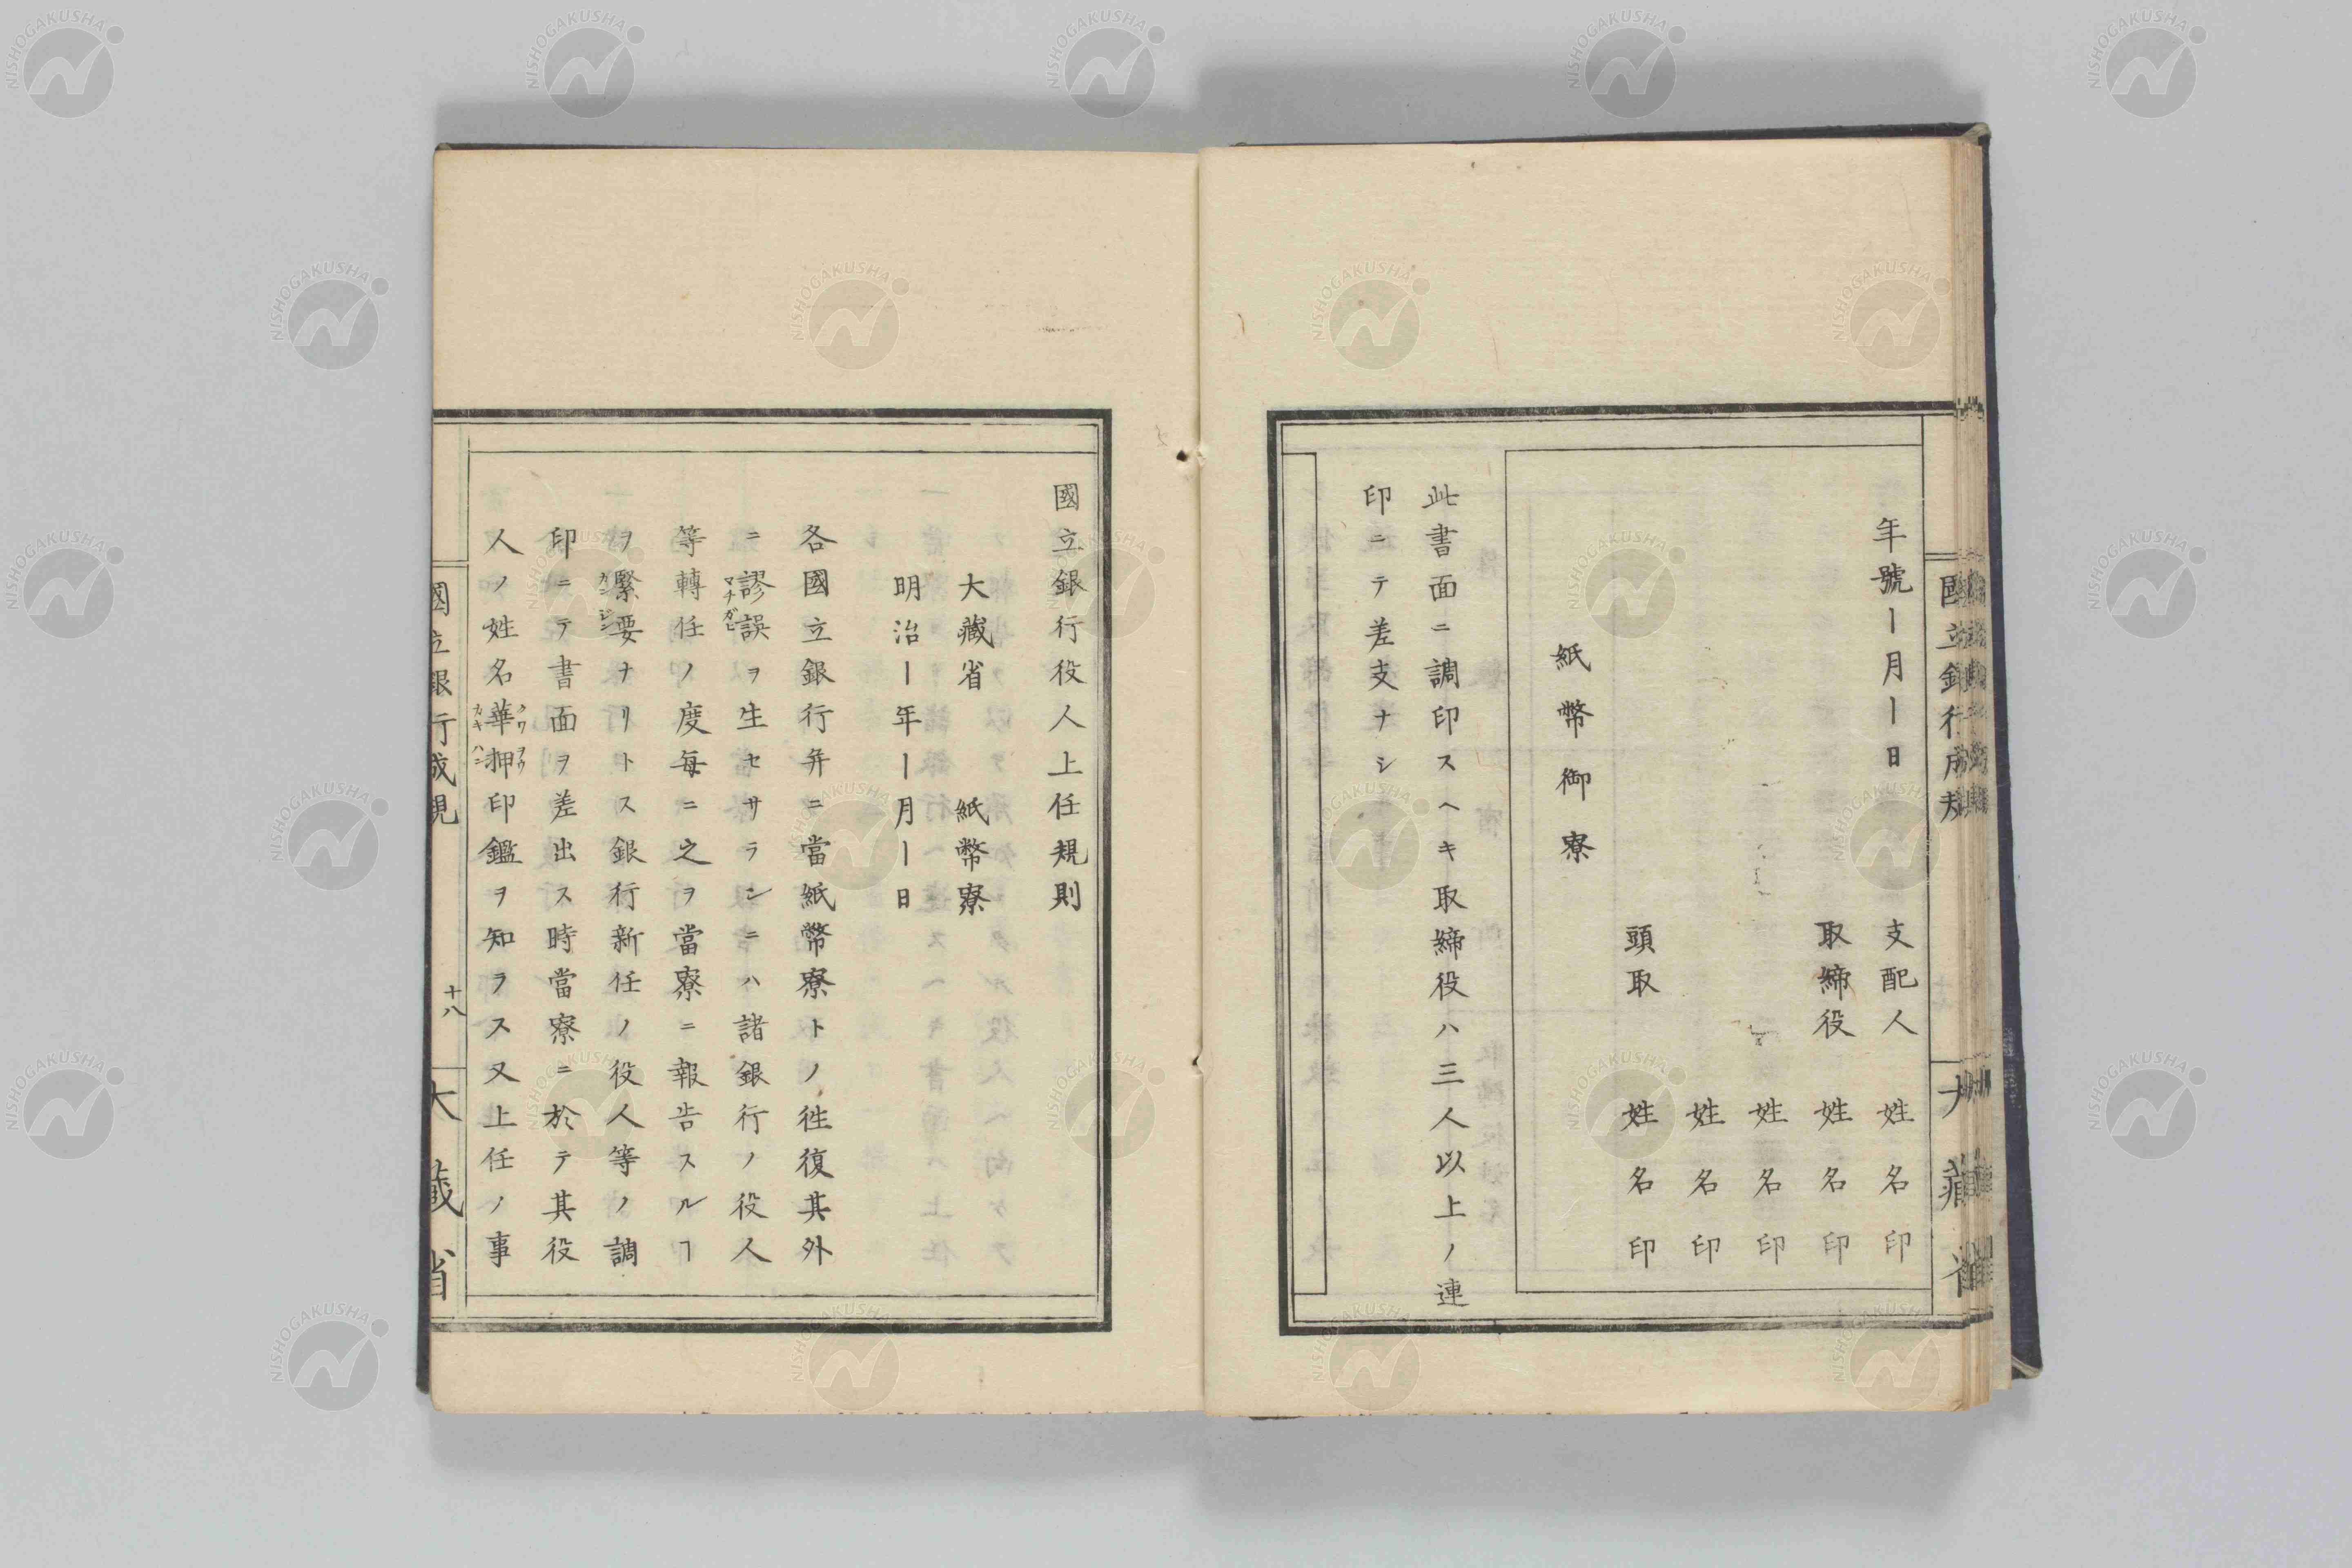 年號ー月ー日
支配人 姓名印
取締役 姓名印
姓名印
姓名印
頭取 姓名印
紙幣御寮
此書面ニ調印スヘキ取締役ハ三人以上ノ連
印ニテ差支ナシ
國立銀行役人上任規則
大藏省 紙幣寮
明治ー年ー月ー日
各國立銀行并ニ當紙幣寮トノ徃復其外
ニ謬誤ヲ生セサラシニハ諸銀行ノ役人
マチガヒ
等轉任ノ度毎ニ之ヲ當寮ニ報告スルヿ
ヲ緊要ナリトス銀行新任ノ役人等ノ調
カンジン
印ニテ書面ヲ差出ス時當寮ニ於テ其役
人ノ姓名華押印鑑ヲ知ラス又上任ノ事
クワヲウ
カキハン
國立銀行成規
十八
大藏省
NISHOGAKUSHA